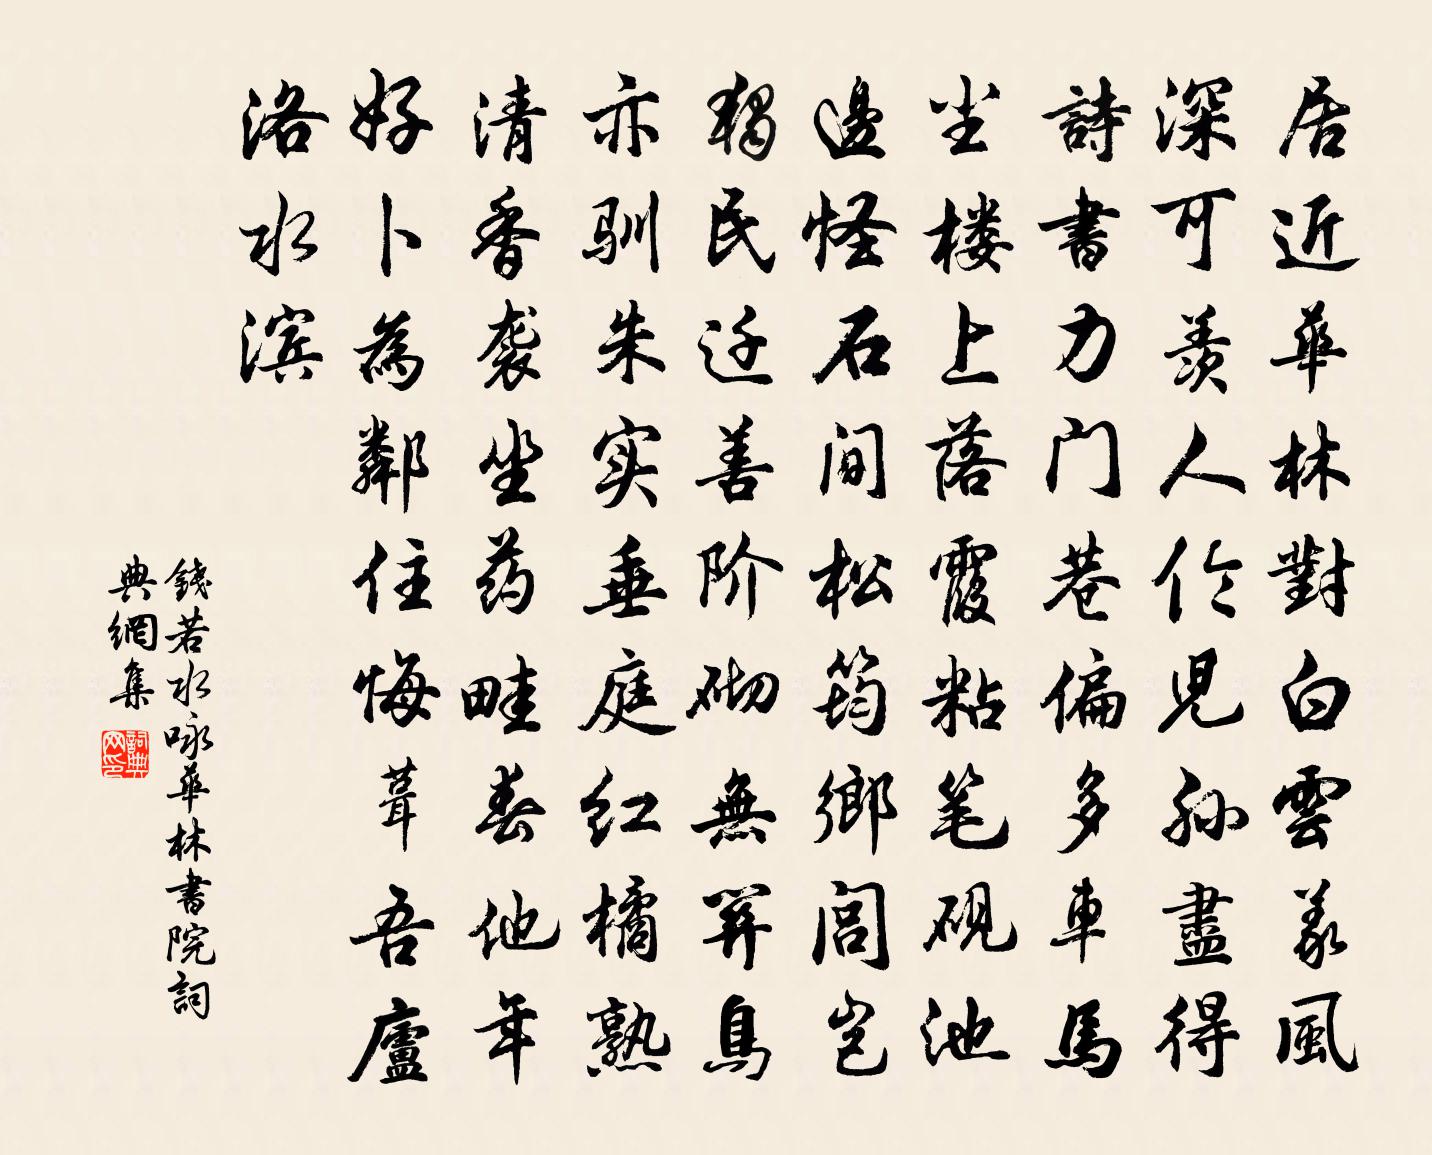 居近華林對白雲義風
深可羨人伦兒孫盡得
詩書力门巷偏多車馬
尘楼上落霞粘笔砚池
邊怪石间松筠鄉闾岂
獨民迁善阶砌無鳥
亦驯朱实垂庭红橘熟
清香袭坐药畦春他年
好卜為鄰住悔葺吾廬
洛水滨
錢若水咏華林書院詞
典網集
詞典
网印